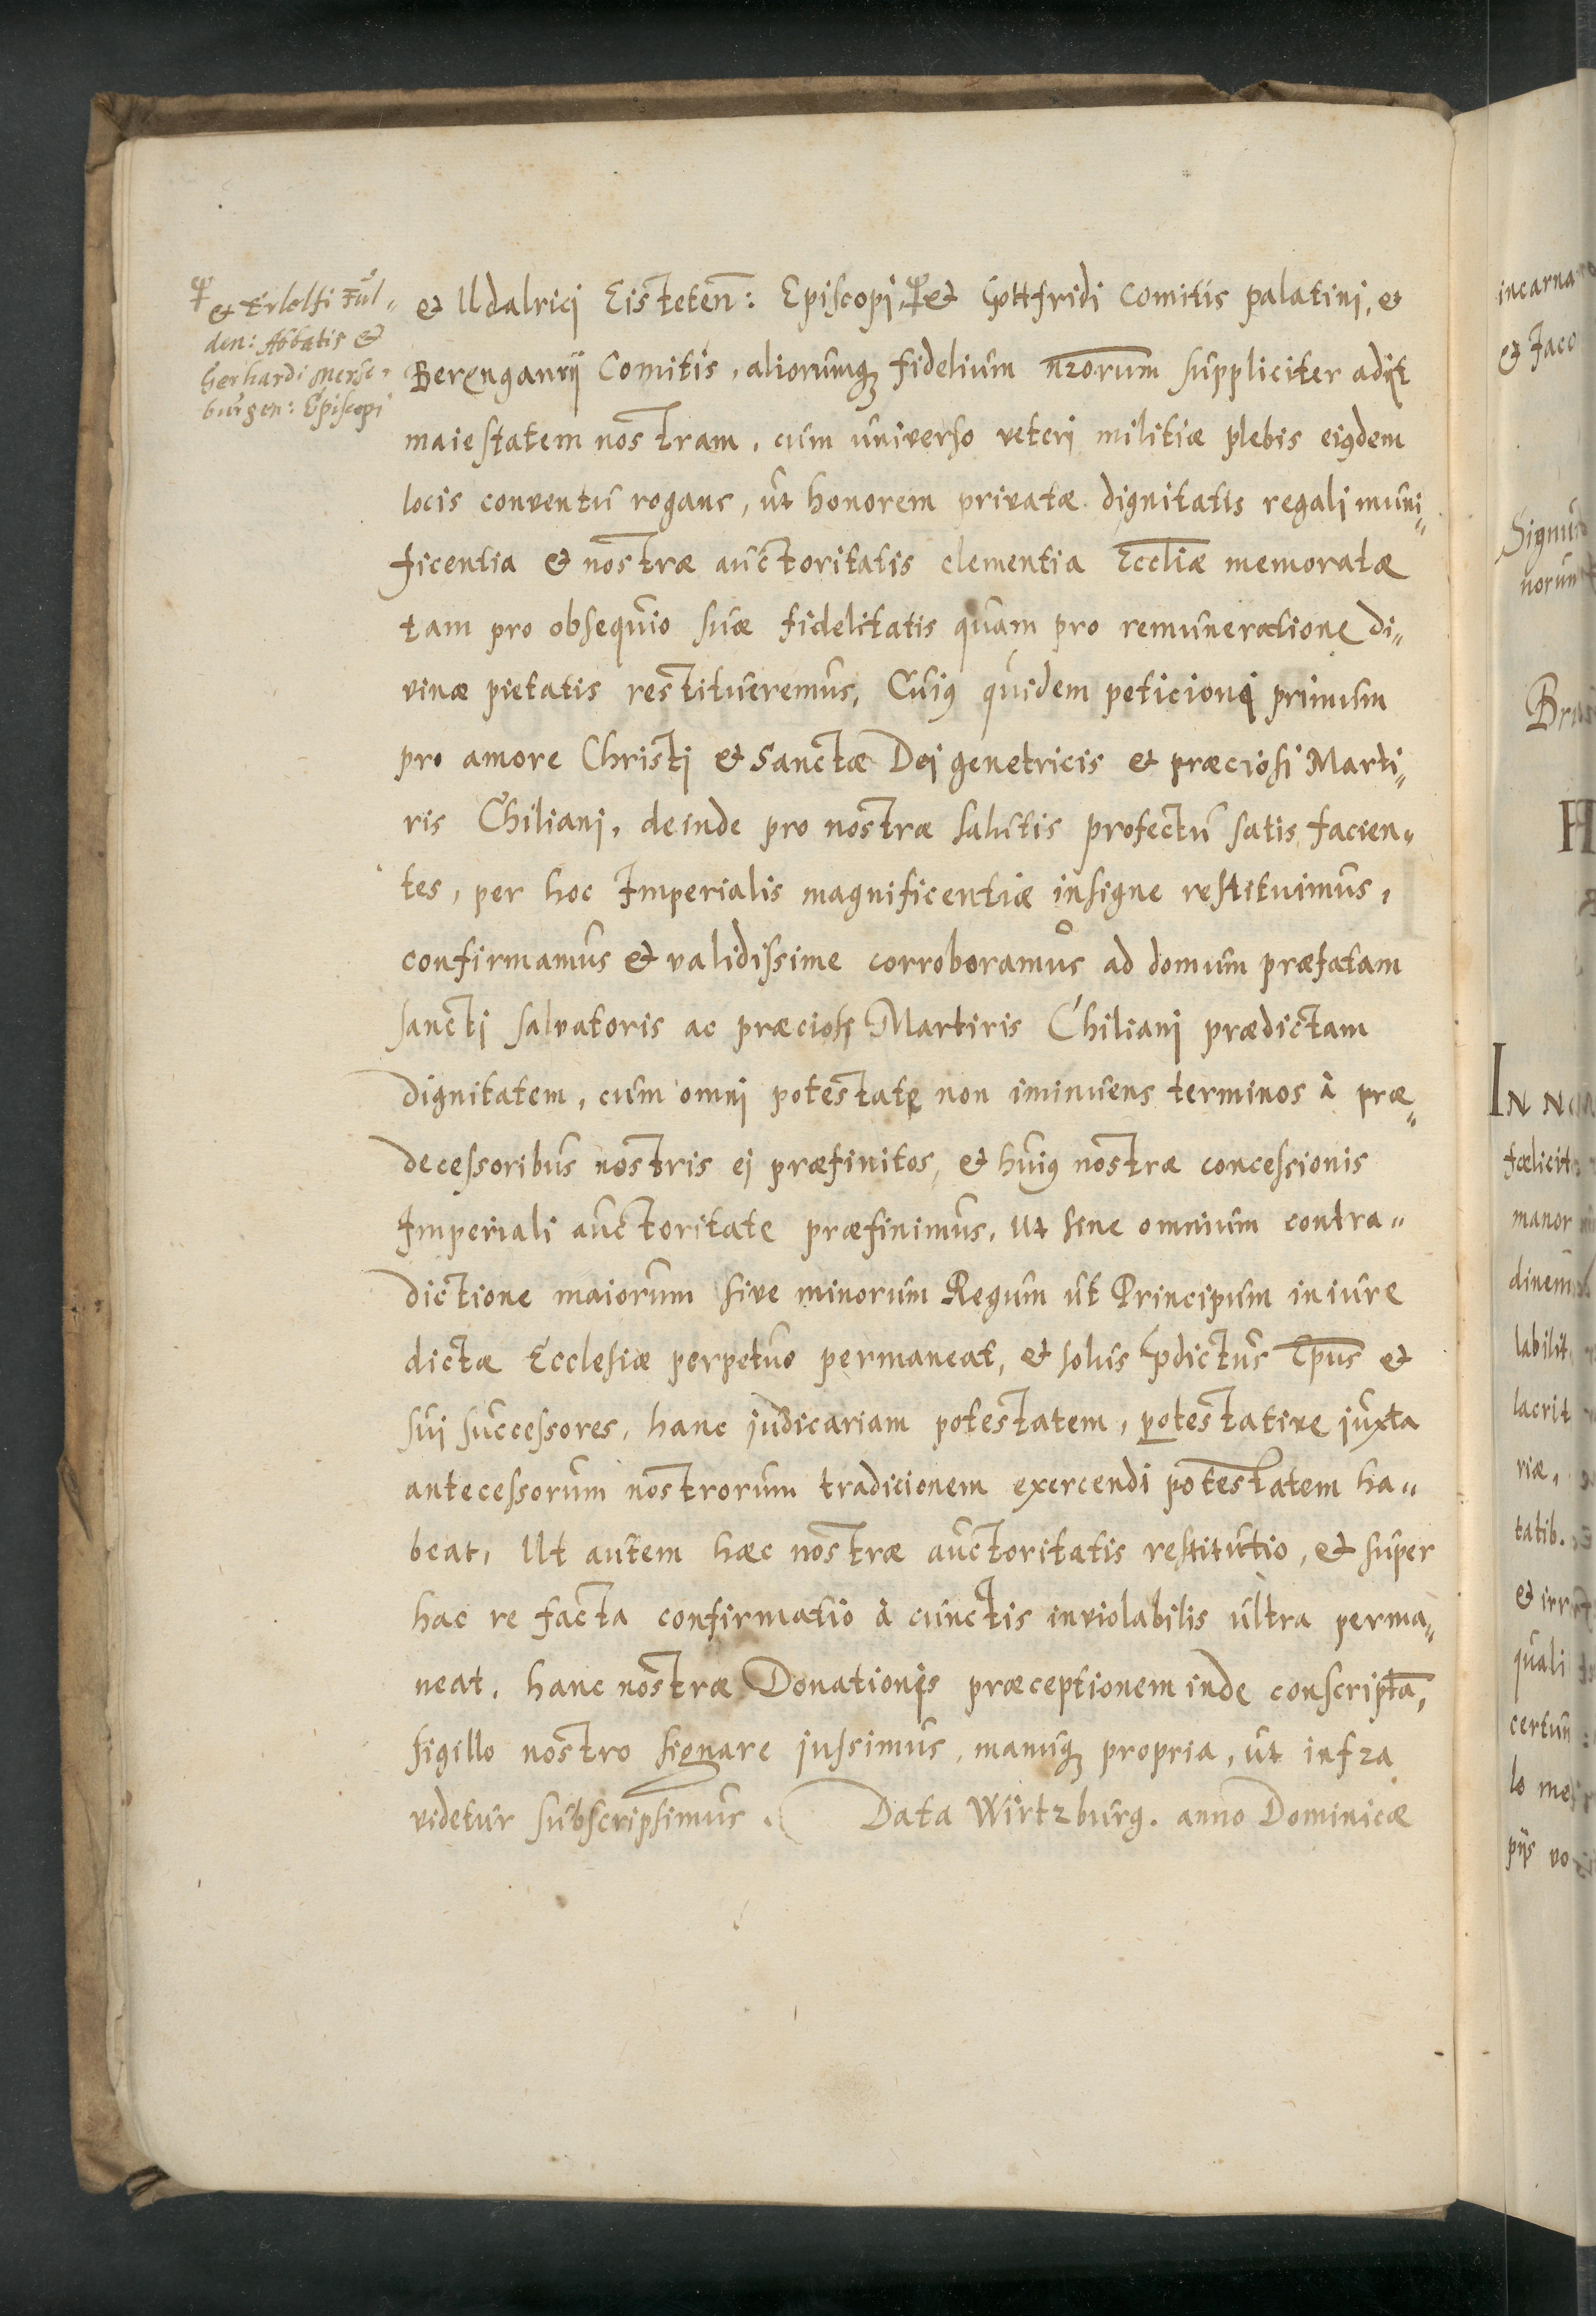 et Erlolfi Ful-
den: Abbatis et
Gerhardi Merse-
burgen: Episcopi
et Udalrici Eisteten: Episcopi, et Gottfridi Comitis palatini, et
Berenganrij Comitis, aliorumq; fidelium nrorum suppliciter adijt
maiestatem nostram, cum universo veteri militiæ plebis eiusdem
locis conventu rogans, ut honorem privatæ dignitatis regali muni-
ficentia et nostræ auctoritatis clementia Eccliæ memoratæ
tam pro obsequio suæ fidelitatis quam pro remuneratione di-
vinæ pietatis restitueremus, Cuius quidem peticioni primum
pro amore Christi et Sanctæ Dei genetricis et præciosi Marti-
ris Chiliani, deinde pro nostræ salutis profectu satis facien-
tes, per hoc Imperialis magnificentiæ insigne restituimus,
confirmamus et validissime corroboramus ad domum præfatam
sancti salvatoris ac præciosi Martiris Chiliani prædictam
dignitatem, cum omni potestate non iminuens terminos à præ-
decessoribus nostris ei præfinitos, et huius nostræ concessionis
Imperiali auctoritate præfinimus, ut sine omnium contra-
dictione maiorum sive minorum Regum ut Principum in iure
dictæ Ecclesiæ perpetuo permaneat, et solus pdictus Epus et
sui successores, hanc judicariam potestatem, potestative juxta
antecessorum nostrorum tradicionem exercendi potestatem ha-
beat, Ut autem hæc nostræ auctoritatis restitutio, et super
hac re facta confirmatio à cunctis inviolabilis ultra perma-
neat, hanc nostræ Donationis præceptionem inde conscriptã,
sigillo nostro signare jussimus, manuq; propria, ut infra
videtur subscripsimus. Data Wirtzburg. anno Dominicæ
incarna
et Jaco
Signu
norun
Bru
H
IN NO
fœlicit
manor
dinem
labilit
lacrit
riæ,
tatib.
et irr
quali
certun
lo me
pijs vo